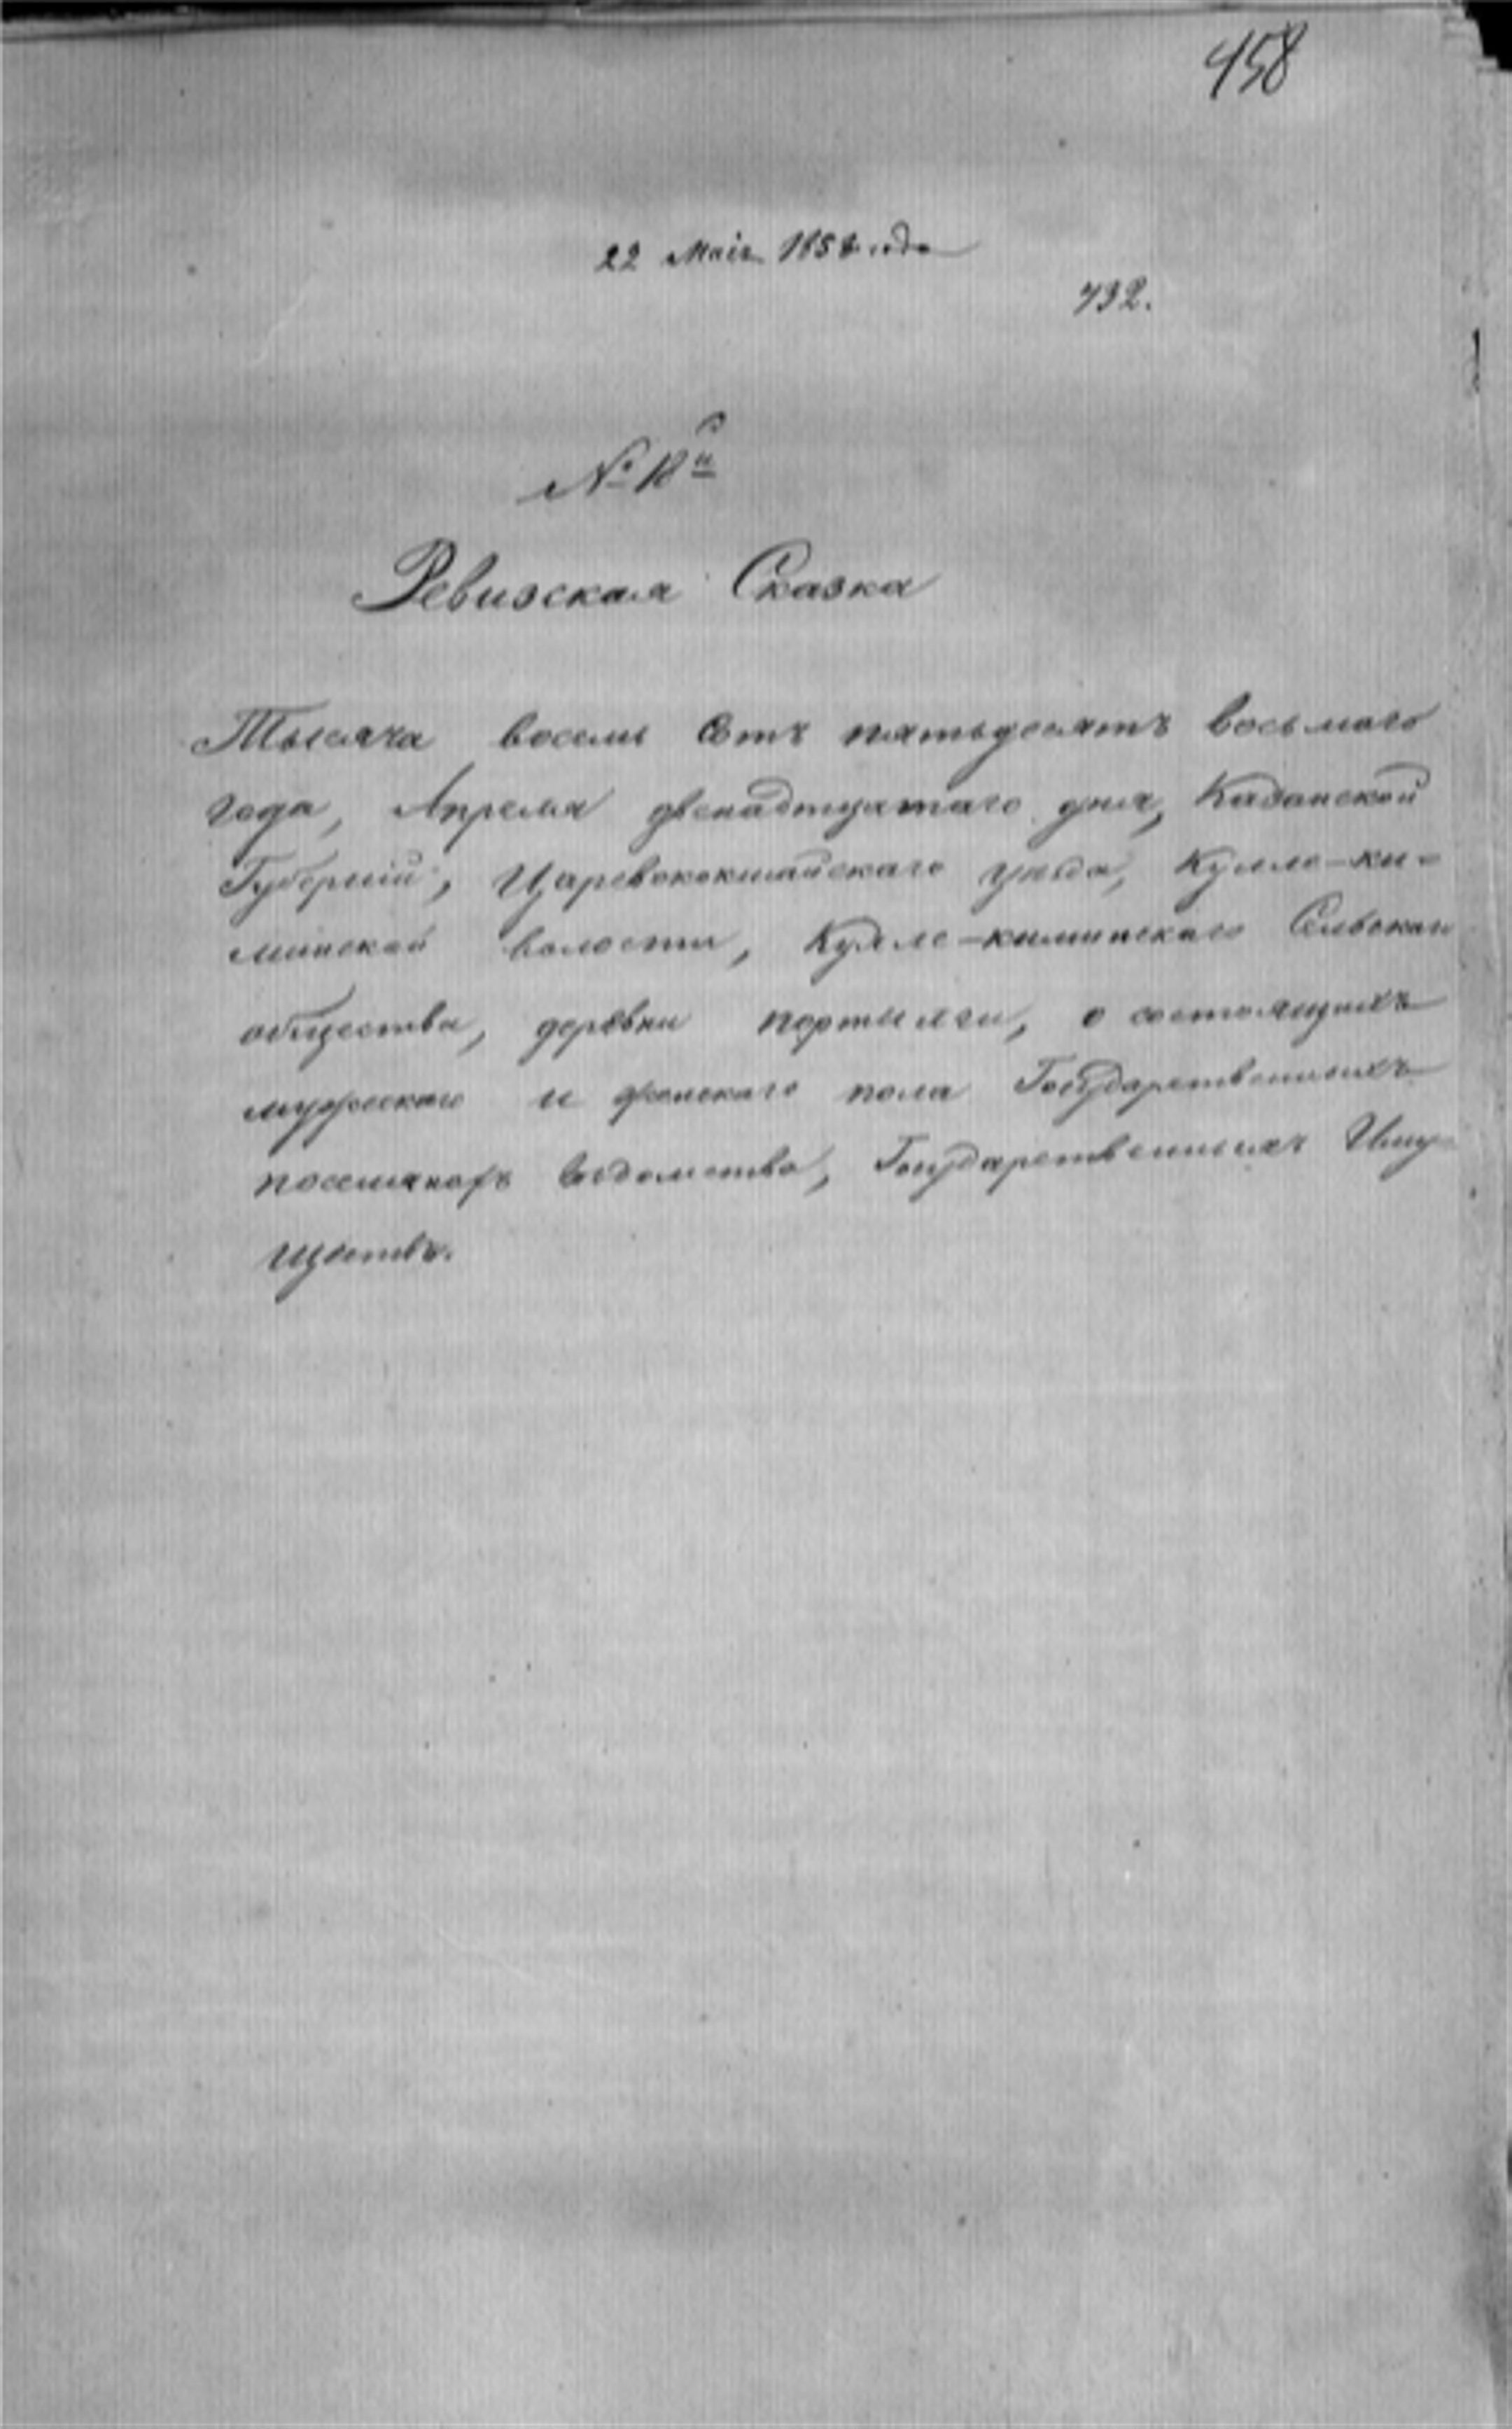 458
22 Маія 1858 года
732.
№ 18й
Ревизская Сказка
Тысяча восемь Сотъ пятьдесятъ восьмаго
года, Апреля двенадтцатаго дня, Казанской
Губерніи, Царевококшайскаго уезда, Кулле-ки-
минской волости, Кулле-киминскаго Сельскаго
общества, деревни портянги, о состоящихъ
мужескаго и женскаго пола Государственныхъ
поселянахъ ведомства, Государственныхъ Иму-
ществъ.